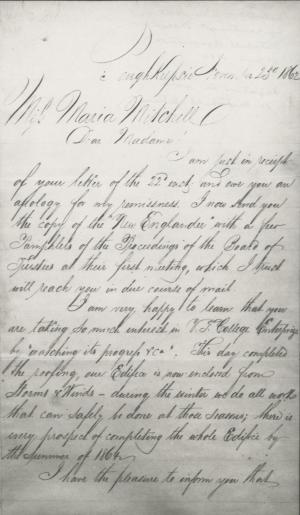 Poughkeepsie Novr 25th 1862
Miss Maria Mitchell
Dear Madame
I am just in receipt
of your letter of the 22d inst, and owe you an
apology for my remissness. I now send you
the copy of the "New Englander" with a few
Pamphlets of the Proceedings of the Board of
Trustees at their first meeting, which I trust
will reach you in due course of mail.
I am very happy to learn that you
are taking so much interest in V. F. College Enterprize
by "watching its progress &c". This day completed
the roofing, our Edifice is now enclosed from
Storms & Winds – during the winter we do all work
that can safely be done at those seasons; there is
every prospect of completing the whole Edifice by
the Summer of 1864.
I have the pleasure to inform you that